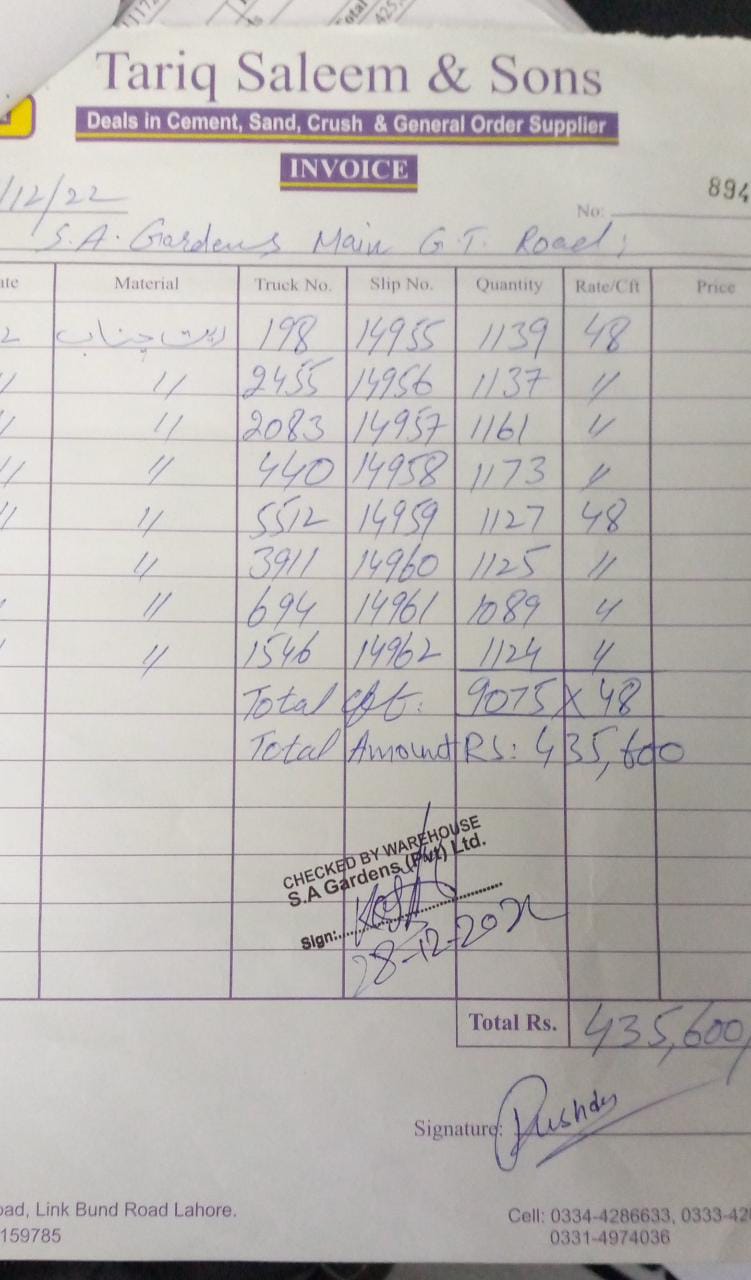 Tariq Saleem & Sons
Deals in Cement, Sand, Crush & General Order Supplier
INVOICE
894
/12/22
No:
S.A. Gardens Main G.T. Road;
ate Material Truck No. Slip No. Quantity Rate/Cft Price
2 ریت چناب 198 14955 1139 48
" " 2455 14956 1137 "
" " 2083 14957 1161 "
" " 440 14958 1173 "
" " 5512 14959 1127 48
" 3911 14960 1125 "
" " 694 14961 1089 "
" " 1546 14962 1124 "
Total cft: 9075 x 48
Total Amount RS: 435,600
CHECKED BY WAREHOUSE
S.A Gardens (Pvt) Ltd.
Sign:
28-12-202
Total Rs. 435,600/
Signature:
oad, Link Bund Road Lahore.
159785
Cell: 0334-4286633, 0333-42
0331-4974036